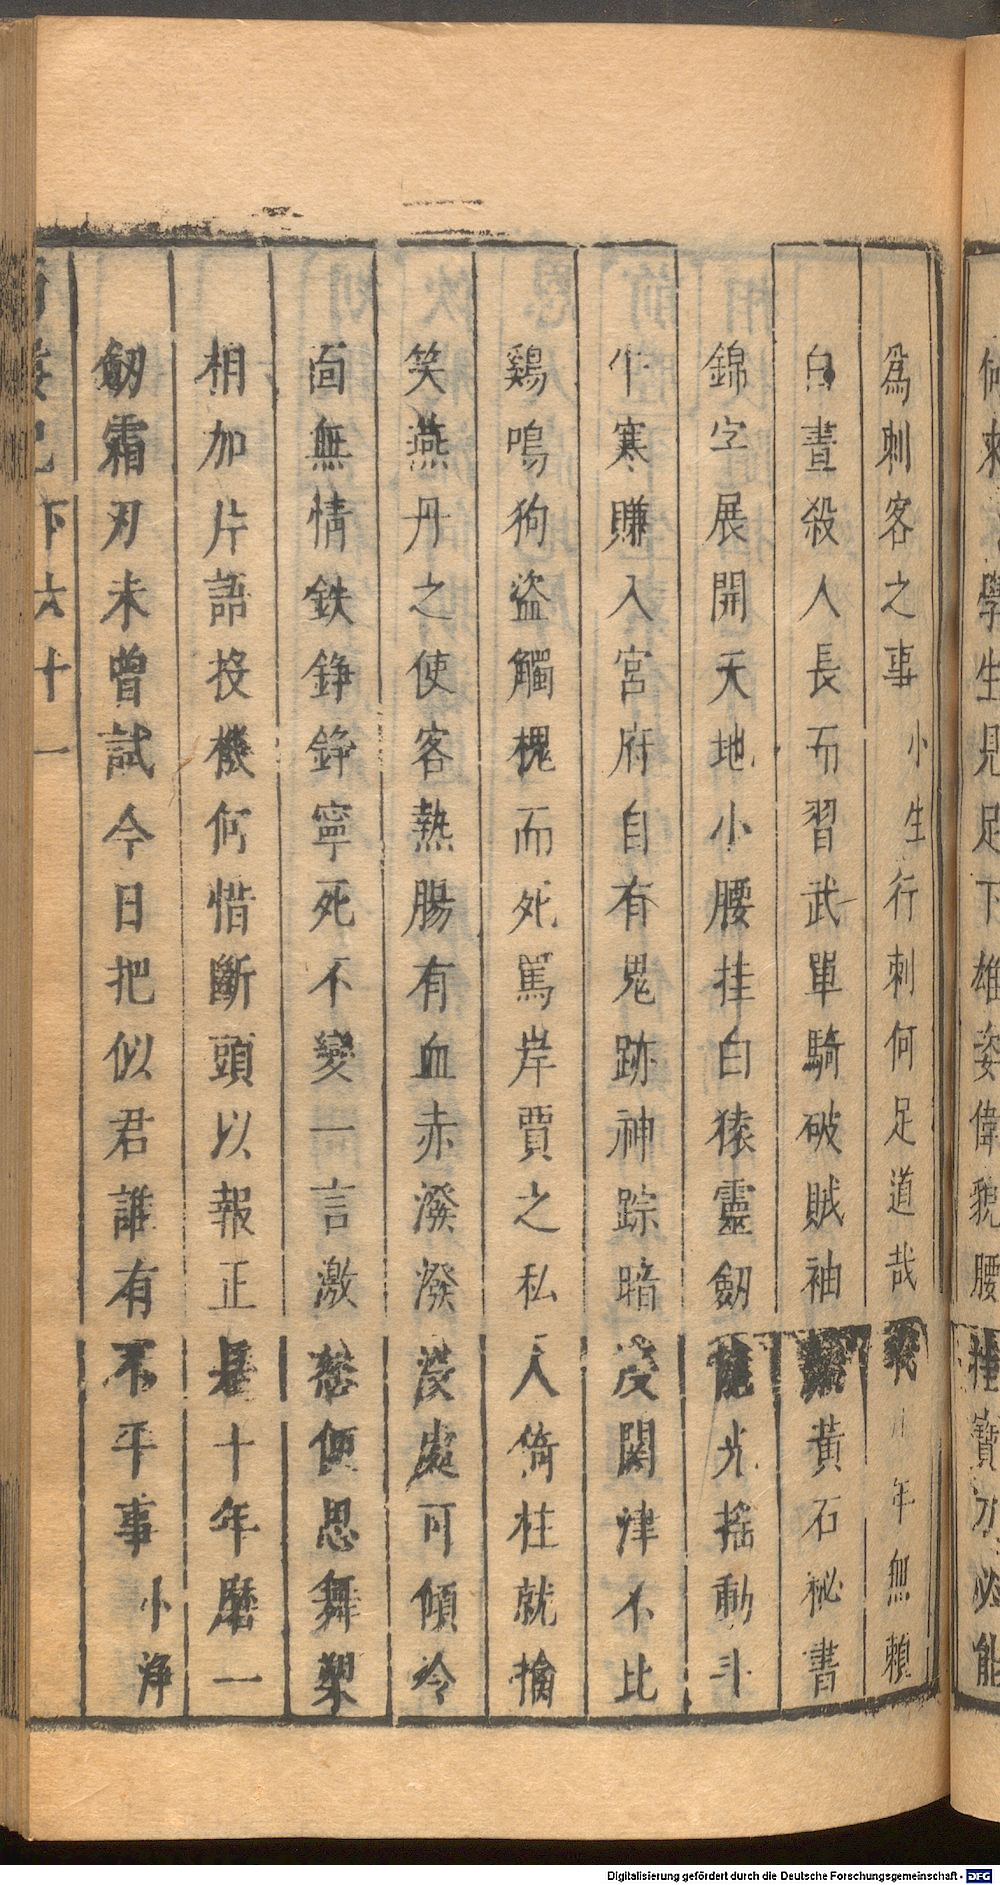 何來 學生見足下雄姿偉貌腰挂寶刀必能
爲刺客之事 小生行刺何足道哉 年無賴
白晝殺人長而習武單騎破賊袖 黃石祕書
錦字展開天地小腰挂白猿靈劒 光搖動斗
牛寒賺入宮府自有鬼跡神踪暗度關津不比
鷄鳴狗盜觸槐而死罵岸賈之私人倚柱就擒
笑燕丹之使客熱腸有血赤潑潑 處可傾冷
面無情鉄錚錚寧死不變一言激 便思舞槊
相加片語投機何惜斷頭以報正是十年磨一
劒霜刃未曾試今日把似君誰有不平事 小淨
下 六十一
Digitalisierung gefördert durch die Deutsche Forschungsgemeinschaft - DFG